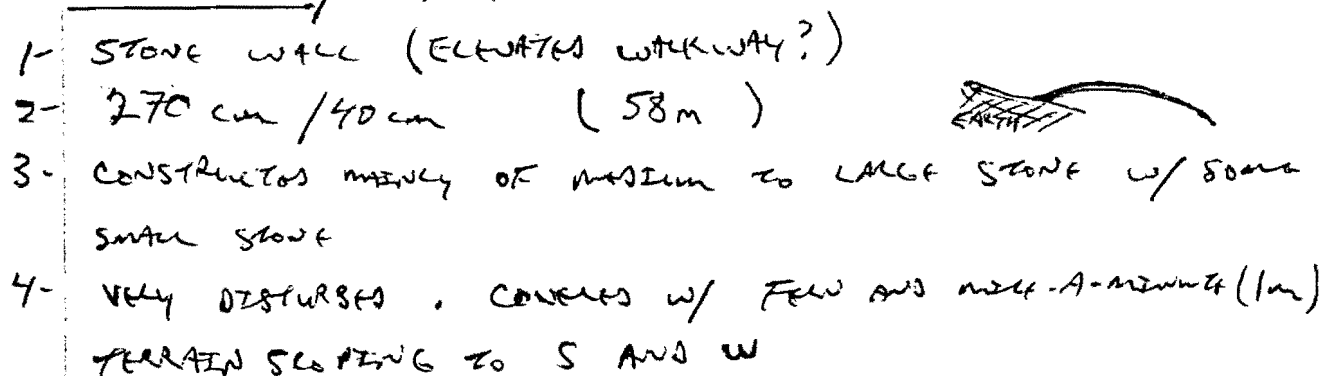 1- STONE WALL (ELEVATED WALKWAY?)
2- 270 cm /40 cm (58m)
EARTH
3- CONSTRUCTED MAINLY OF MEDIUM TO LARGE STONE W/ SOME
SMALL STONE
4- VERY DISTURBED. COVERED W/ FERN AND MILE-A-MINUTE (1m)
TERRAIN SLOPING TO S AND W